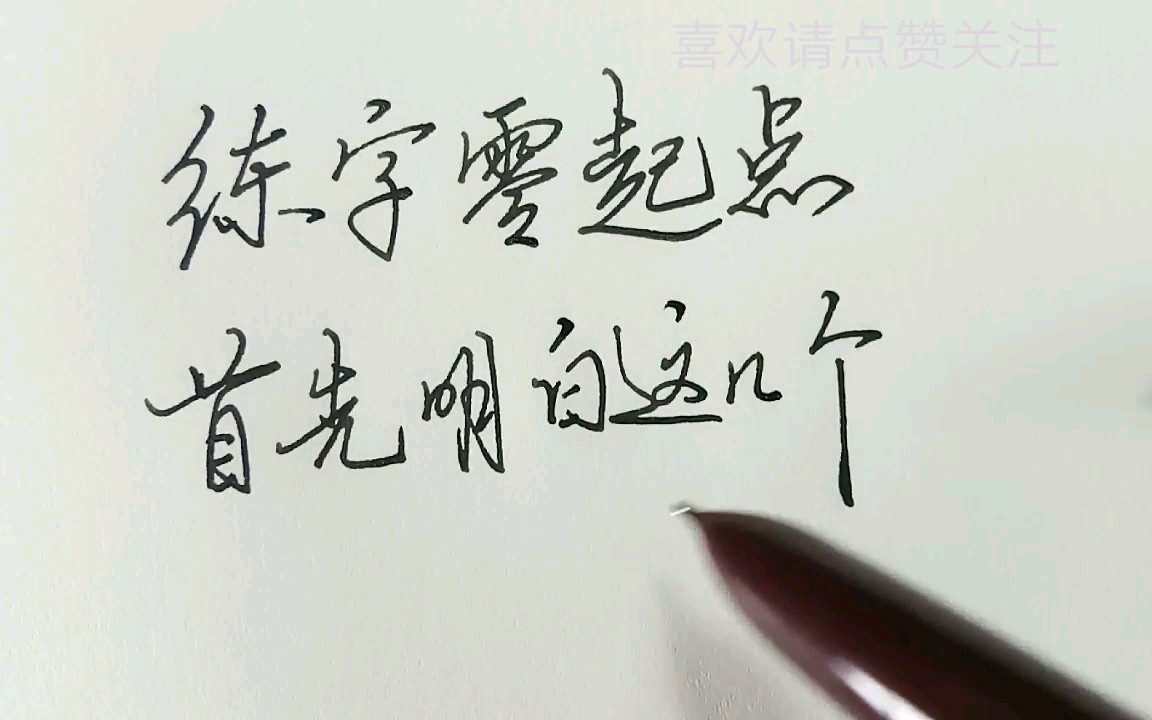 喜欢请点赞关注
练字零起点
首先明白这几个